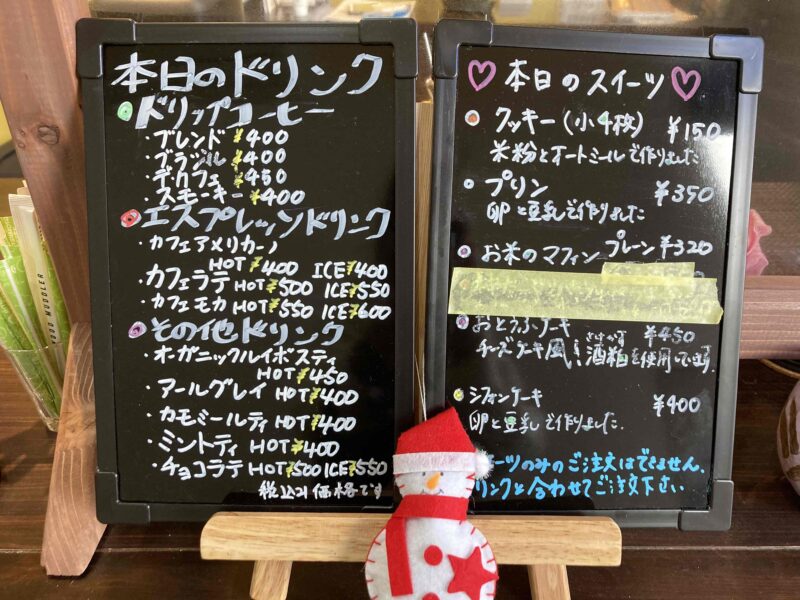 本日のドリンク
ドリップコーヒー
・ブレンド ¥400
・ブラジル ¥400
・デカフェ ¥450
・スモーキー ¥400
エスプレッソドリンク
・カフェアメリカーノ
HOT ¥400 ICE ¥400
・カフェラテ HOT ¥500 ICE ¥550
・カフェモカ HOT ¥550 ICE ¥600
その他ドリンク
・オーガニックルイボスティ
HOT ¥450
・アールグレイ HOT ¥400
・カモミールティ HOT ¥400
・ミントティ HOT ¥400
・チョコラテ HOT ¥500 ICE ¥550
税込み価格です
♡本日のスイーツ♡
クッキー(小4枚) ¥150
米粉とオートミールで作りました
プリン ¥350
卵と豆乳で作りました
お米のマフィン プレーン ¥320
おとうふケーキ ¥450
チーズケーキ風! 酒粕を使用しています
さけかす
シフォンケーキ ¥400
卵と豆乳で作りました
ーツのみのご注文はできません.
リンクと合わせてご注文下さい.
FOOD MUDDLER